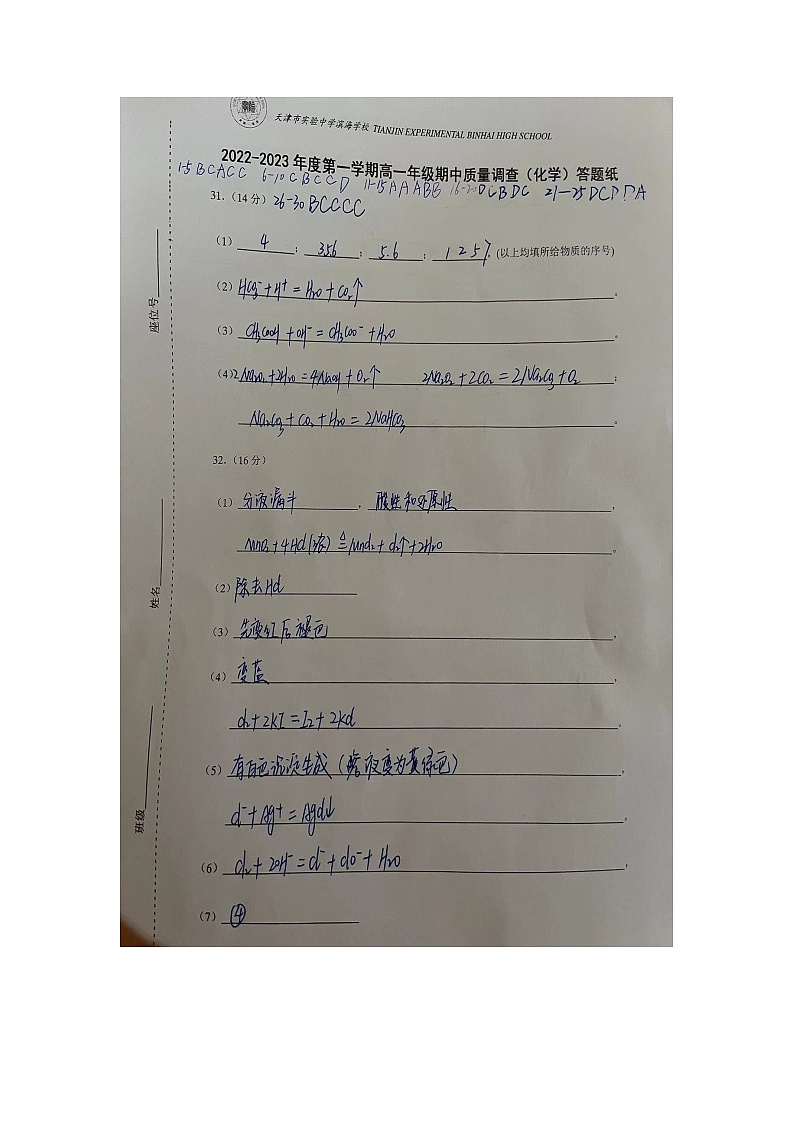 天津市实验中学滨海学校 TIANJIN EXPERIMENTAL BINHAI HIGH SCHOOL
2022-2023年度第一学期高一年级期中质量调查（化学）答题纸
1-5 BCACC 6-10 CBCCD 11-15 AAABB 16-20 DCBDC 21-25 DCDDA
31.（14分） 26-30 BCCCC
（1） 4 ; 356 ; 5.6 ; 1257 。(以上均填所给物质的序号)
（2） HCO₃⁻+H⁺=H₂O+CO₂↑ 。
（3） CH₃COOH+OH⁻=CH₃COO⁻+H₂O 。
（4） 2Na₂O₂+2H₂O=4NaOH+O₂↑ 2Na₂O₂+2CO₂=2Na₂CO₃+O₂ ;
Na₂CO₃+CO₂+H₂O=2NaHCO₃
32.（16分）
（1） 分液漏斗 ， 酸性和还原性 ，
MnO₂+4HCl(浓)≜MnCl₂+Cl₂↑+2H₂O 。
（2） 除去HCl
（3） 先变红后褪色 ，
（4） 变蓝 ，
Cl₂+2KI=I₂+2KCl 。
（5） 有白色沉淀生成（溶液变为黄绿色） ，
Cl⁻+Ag⁺=AgCl↓ 。
（6） Cl₂+2OH⁻=Cl⁻+ClO⁻+H₂O ，
（7） ④
座位号
姓名
班级